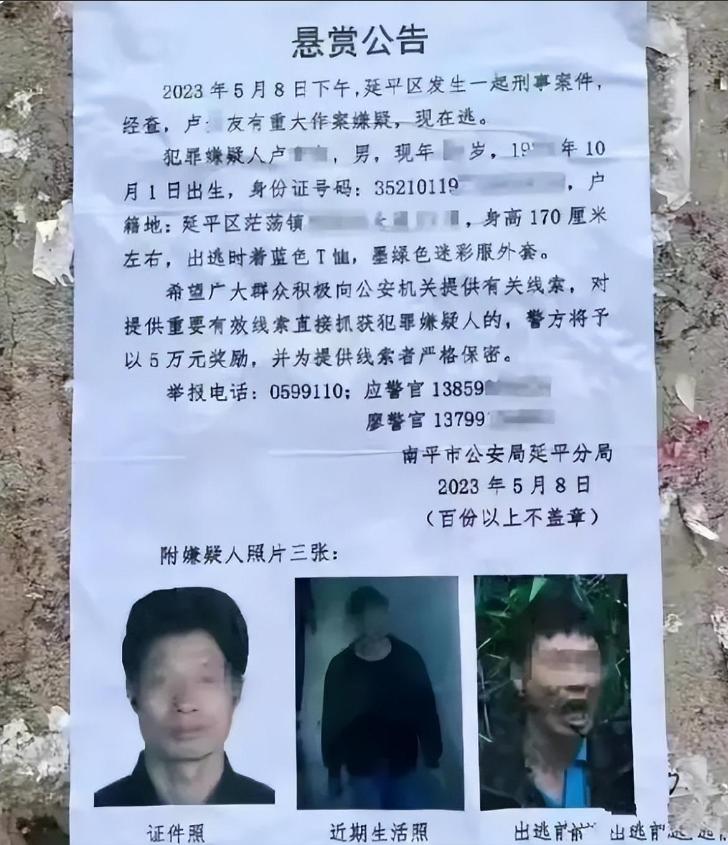 悬赏公告
2023年5月8日下午,延平区发生一起刑事案件,
经查,卢 友有重大作案嫌疑,现在逃。
犯罪嫌疑人卢 ,男,现年 岁,19 年10
月1日出生,身份证号码:35210119 ,户
籍地:延平区茫荡镇 ,身高170厘米
左右,出逃时着蓝色T恤,墨绿色迷彩服外套。
希望广大群众积极向公安机关提供有关线索,对
提供重要有效线索直接抓获犯罪嫌疑人的,警方将予
以5万元奖励,并为提供线索者严格保密。
举报电话:0599110;应警官13859
廖警官13799
南平市公安局延平分局
2023年5月8日
(百份以上不盖章)
附嫌疑人照片三张:
证件照 近期生活照 出逃前